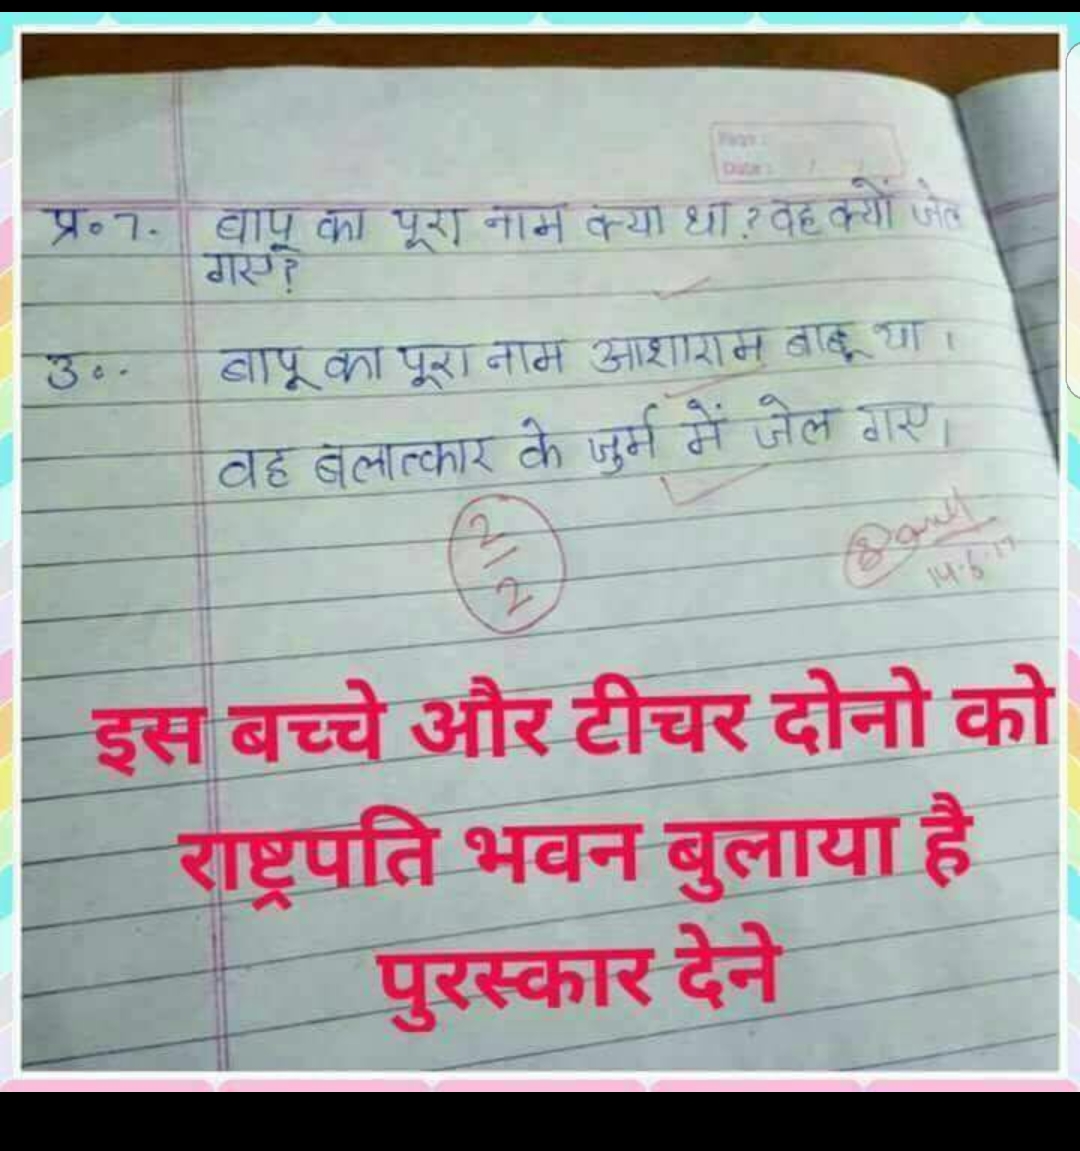 Page :
Date : / /
प्र॰7. बापू का पूरा नाम क्या था? वह क्यों जेल
गए?
उ॰. बापू का पूरा नाम आशाराम बाबू था।
वह बलात्कार के जुर्म में जेल गए।
2/2
14.6.17
इस बच्चे और टीचर दोनो को
राष्ट्रपति भवन बुलाया है
पुरस्कार देने